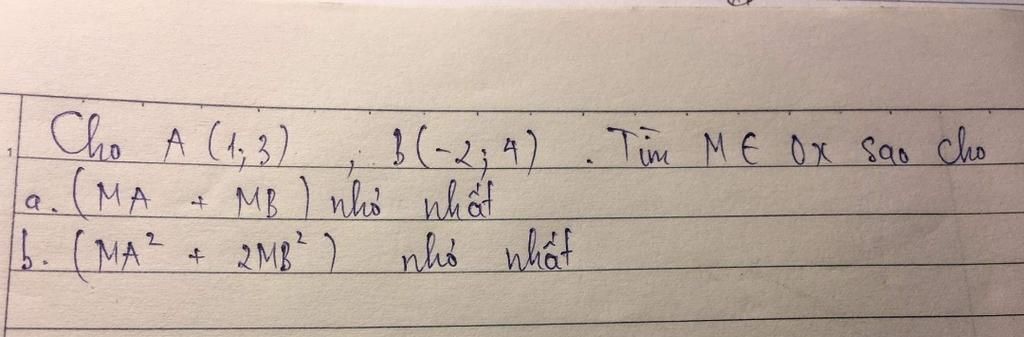 Cho A (1; 3) , B(-2; 4) . Tìm M ∈ Ox sao cho
a. (MA + MB) nhỏ nhất
b. (MA² + 2MB²) nhỏ nhất